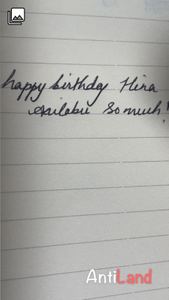 happy birthdy Hira
so much!
AntiLand